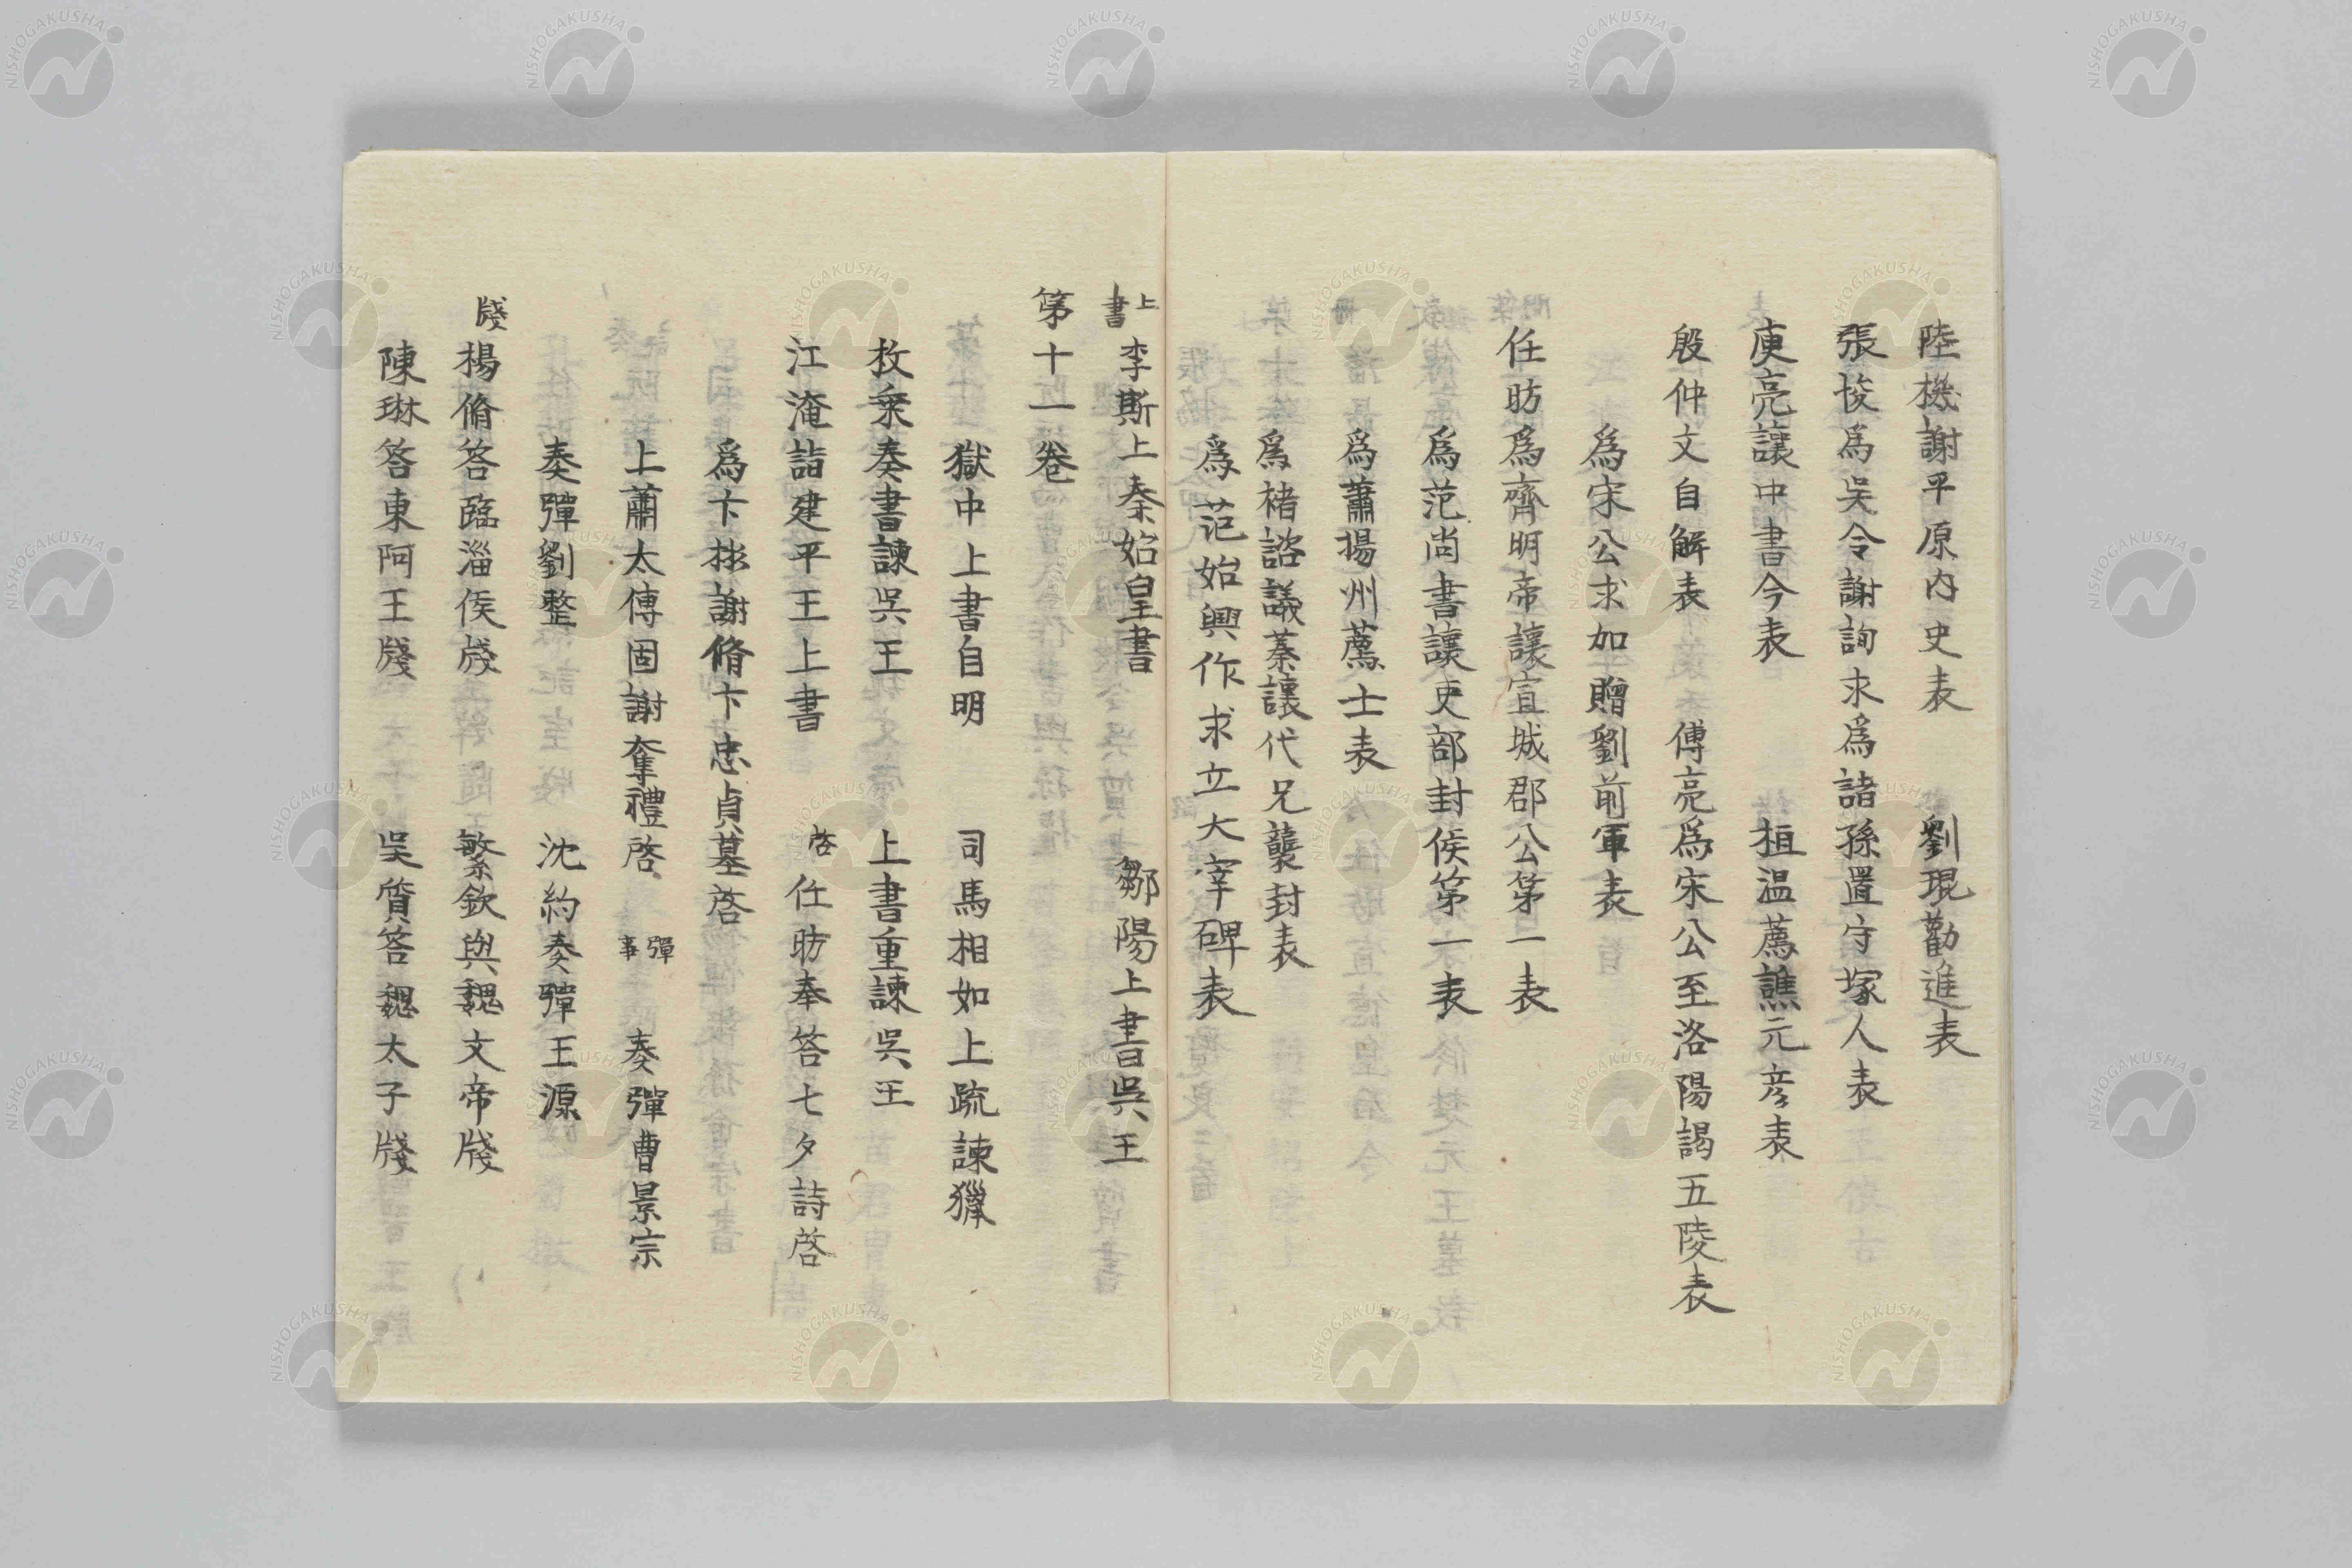 陸機謝平原内史表　劉琨勸進表
張悛爲吳令謝詢求爲諸孫置守塚人表
庾亮讓中書令表　桓温薦譙元彦表
殷仲文自解表　傅亮爲宋公至洛陽謁五陵表
爲宋公求加贈劉前軍表
任昉爲齊明帝讓宣城郡公第一表
爲范尚書讓吏部封侯第一表
爲蕭揚州薦士表
爲褚諮議蓁讓代兄襲封表
爲范始興作求立大宰碑表
上書　李斯上秦始皇書　鄒陽上書吳王
第十一卷
獄中上書自明　司馬相如上疏諫獵
枚乘奏書諫吳王　上書重諫吳王
江淹詣建平王上書　啓　任昉奉答七夕詩啓
爲卞彬謝脩卞忠貞墓啓
上蕭太傅固謝奪禮啓　彈事　奏彈曹景宗
奏彈劉整　沈約奏彈王源
牋　楊脩答臨淄侯牋　繁欽與魏文帝牋
陳琳答東阿王牋　吳質答魏太子牋
NISHOGAKUSHA